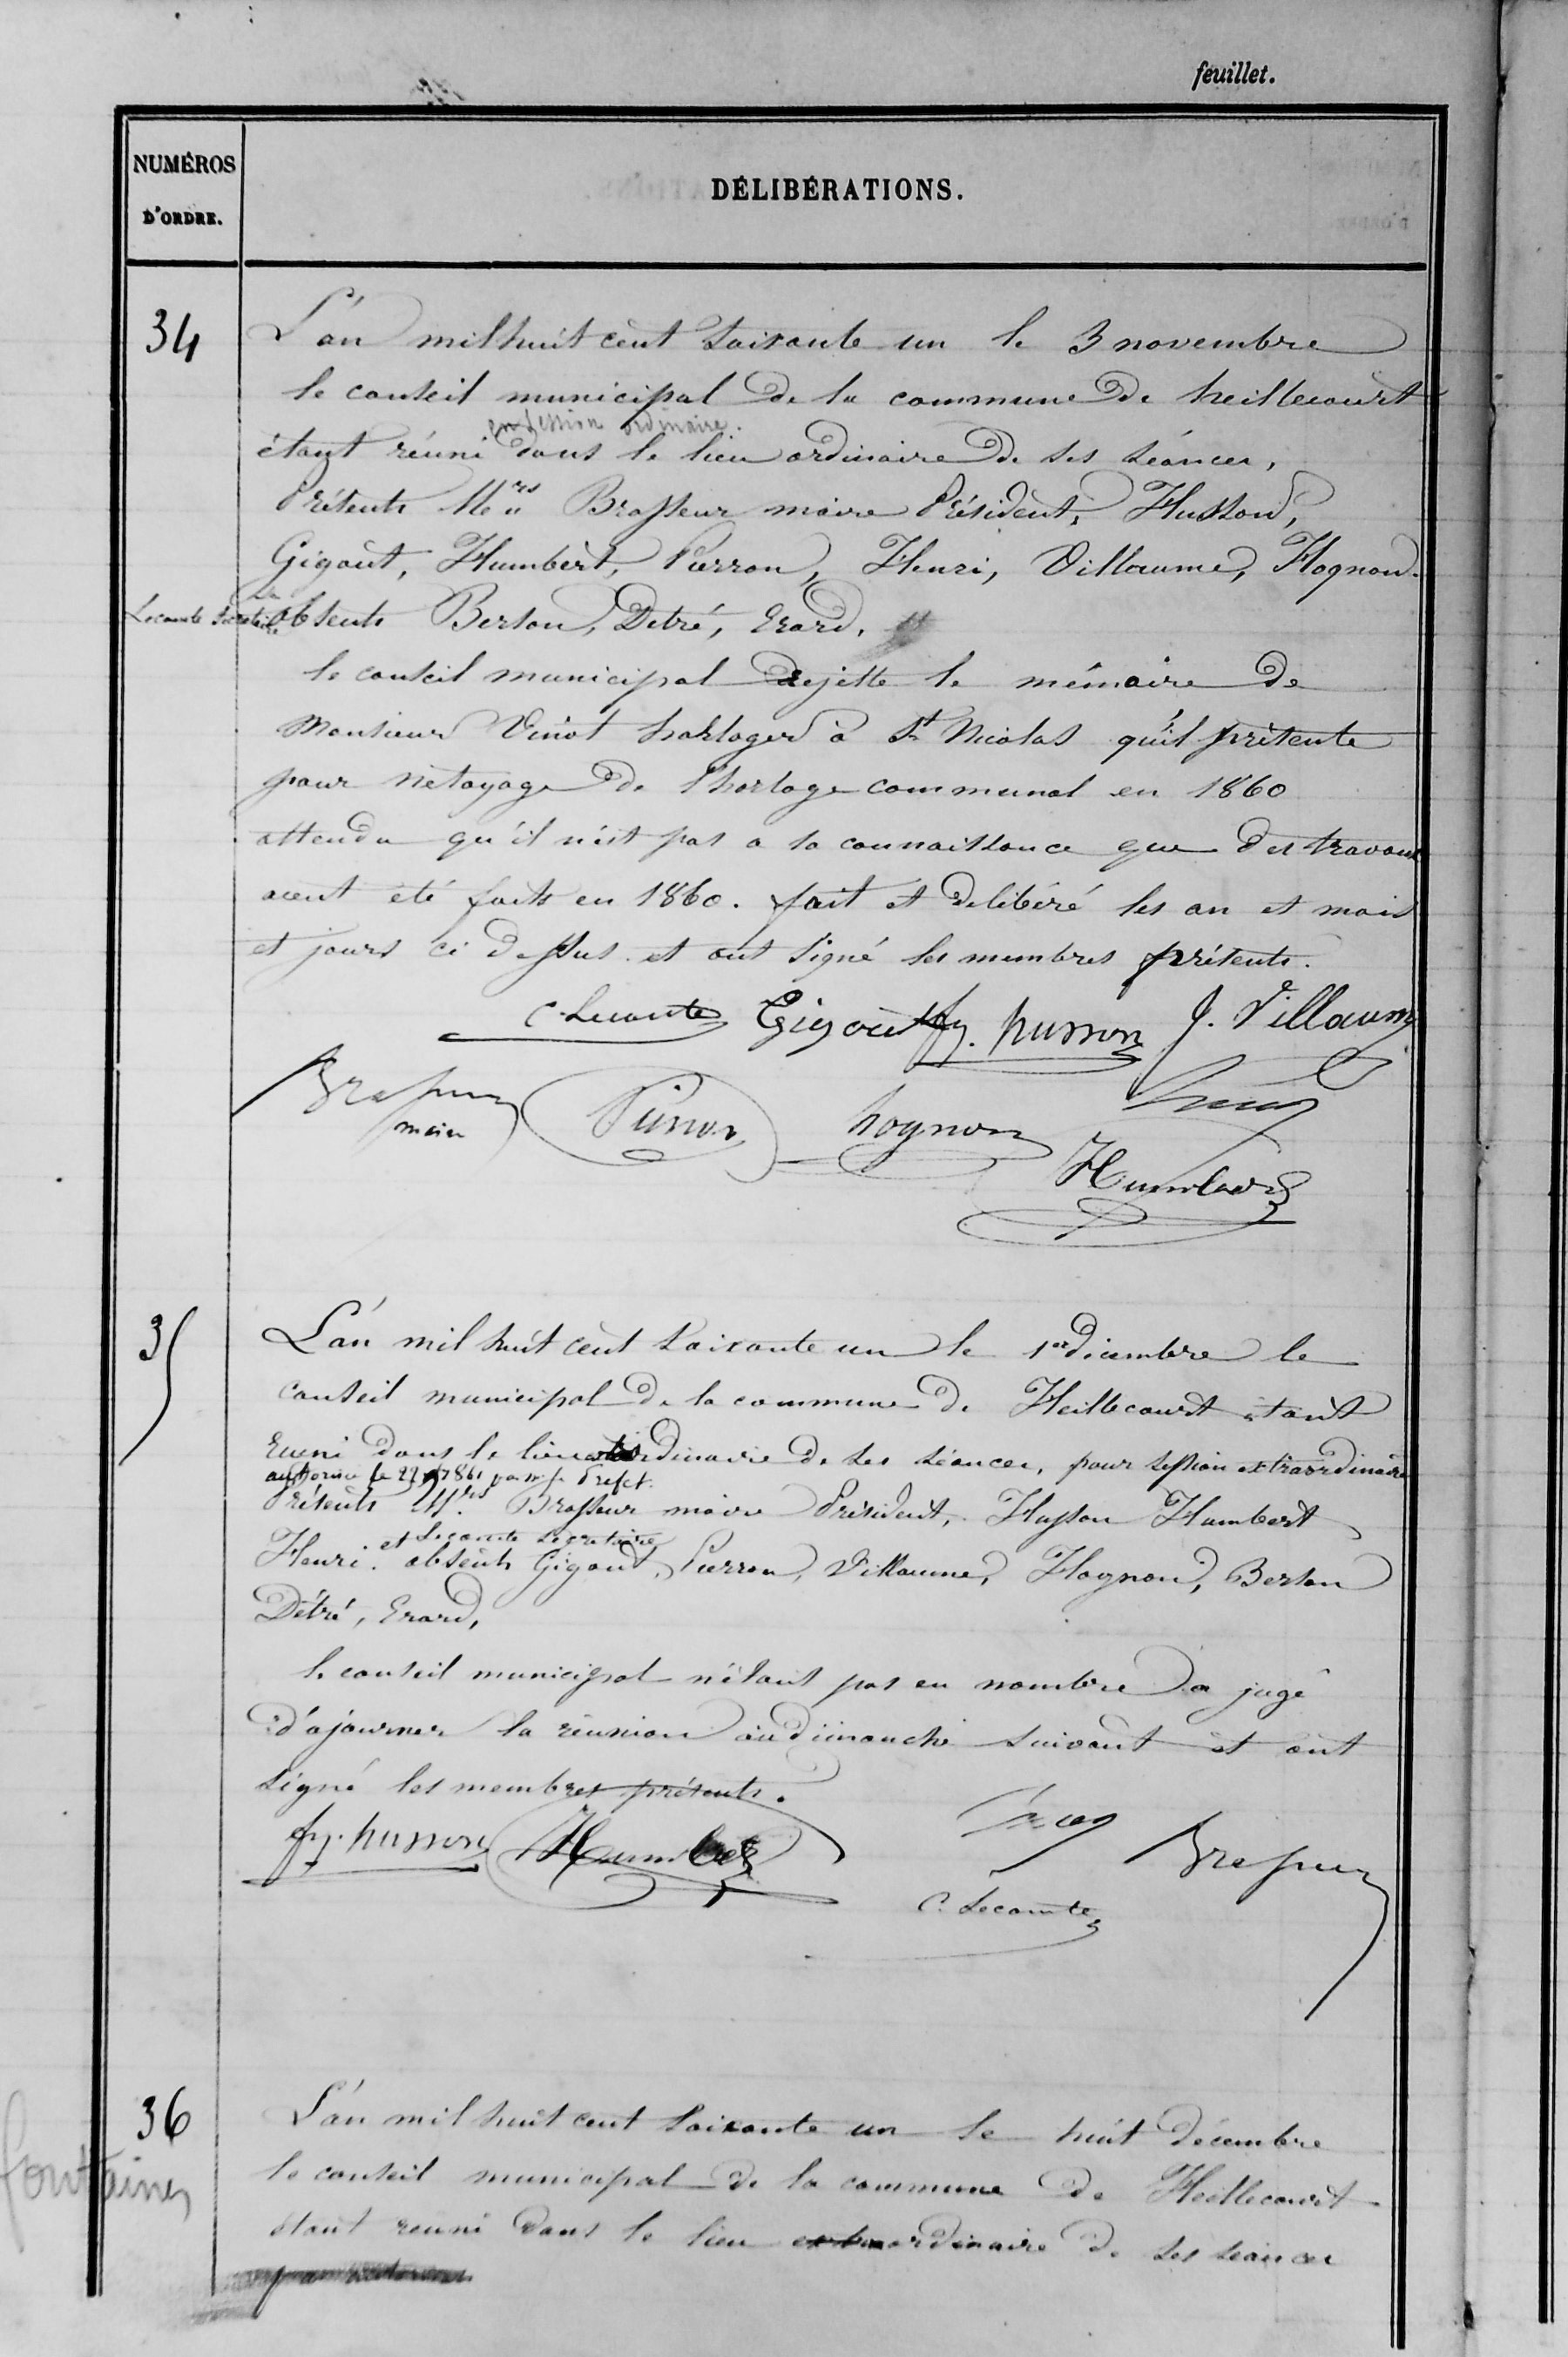 feuillet.
NUMÉROS
D'ORDRE.
DÉLIBÉRATIONS.
34
L'an mil huit cent soixante un le 3 novembre
le conseil municipal de la commune de heillecourt
en session ordinaire.
étant réuni dans le lieu ordinaire de ses séances,
Présents Mrs Brasseur maire Président, Husson,
Gigout, Humbert, Pierron, Henri, Villaume, Hognon.
Lecomte Secretaire
absents Berson, Detré, Erard.
le conseil municipal rejette le mémoire de
Monsieur Vinot horloger à St Nicolas qu'il présente
pour nétoyage de l'horloge communal en 1860
attendu qu'il n'est pas a sa connaissance que des travaux
aient été faits en 1860. fait et délibéré les an et mois
et jours ci dessus et ont signé les membres présents.
C. Lecomte Gigout fs. husson J. Villaume
Brasseur Pierron hognon Henry
maire
Humbert
35
L'an mil huit cent soixante un le 1er décembre le
conseil municipal de la commune de Heillecourt étant
réuni dans le lieu ordinaire de ses séances, pour session extraordinaire
autorisée le 22 9bre 1861 par mr le Prefet.
Présents Mrs Brasseur maire Président, Husson Humbert
et Lecomte Secretaire
Henri. absents Gigout, Pierron, Villaume, Hognon, Berson
Détré, Erard,
le conseil municipal n'étant pas en nombre a jugé
d'ajourner la réunion au dimanche suivant et ont
signé les membres présents.
fs. husson Humbert Henry Brasseur
C. Lecomte
36
fontaines
L'an mil huit cent soixante un le huit décembre
le conseil municipal de la commune de Heillecourt
étant réuni dans le lieu extraordinaire de ses séances